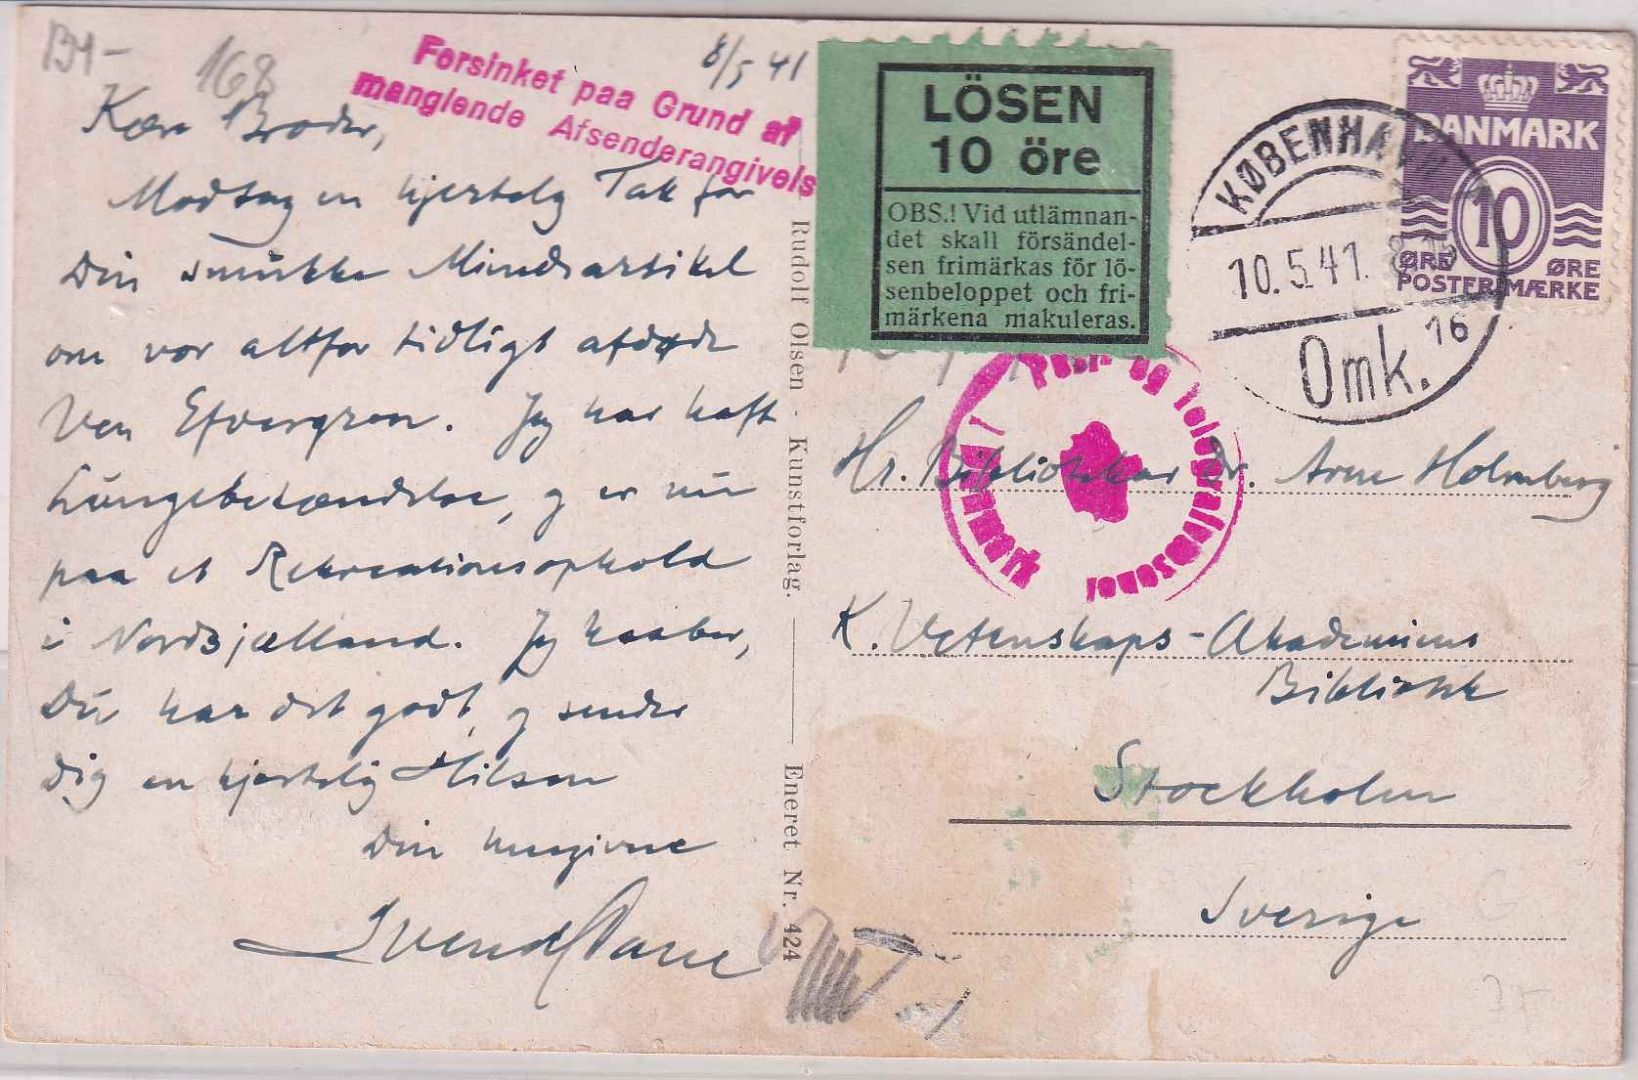 168
8/5 41
Forsinket paa Grund af
manglende Afsenderangivels
Kære Broder,
Modtag en hjertelig Tak for
Din smukke Mindeartikel
om vor altfor tidligt afdøde
Ven
Jeg har haft
Lungebetændelse, og er nu
paa et Rekreationsophold
i Nordsjælland. Jeg haaber,
Du har det godt, og sender
Dig en hjertelig Hilsen
Din hengivne
Svend
Rudolf Olsen - Kunstforlag.
Eneret Nr. 424
LÖSEN
10 öre
OBS.! Vid utlämnan-
det skall försändel-
sen frimärkas för lö-
senbeloppet och fri-
märkena makuleras.
KØBENHAVN
10.5.41.
Omk. 16
DANMARK
10
ØRE ØRE
POSTFRIMÆRKE
Post og Telegrafvæsenet
Danmark
Hr. Bibliotekar Dr. Arne Holmberg
K. Vetenskaps-Akademiens
Bibliotek
Stockholm
Sverige